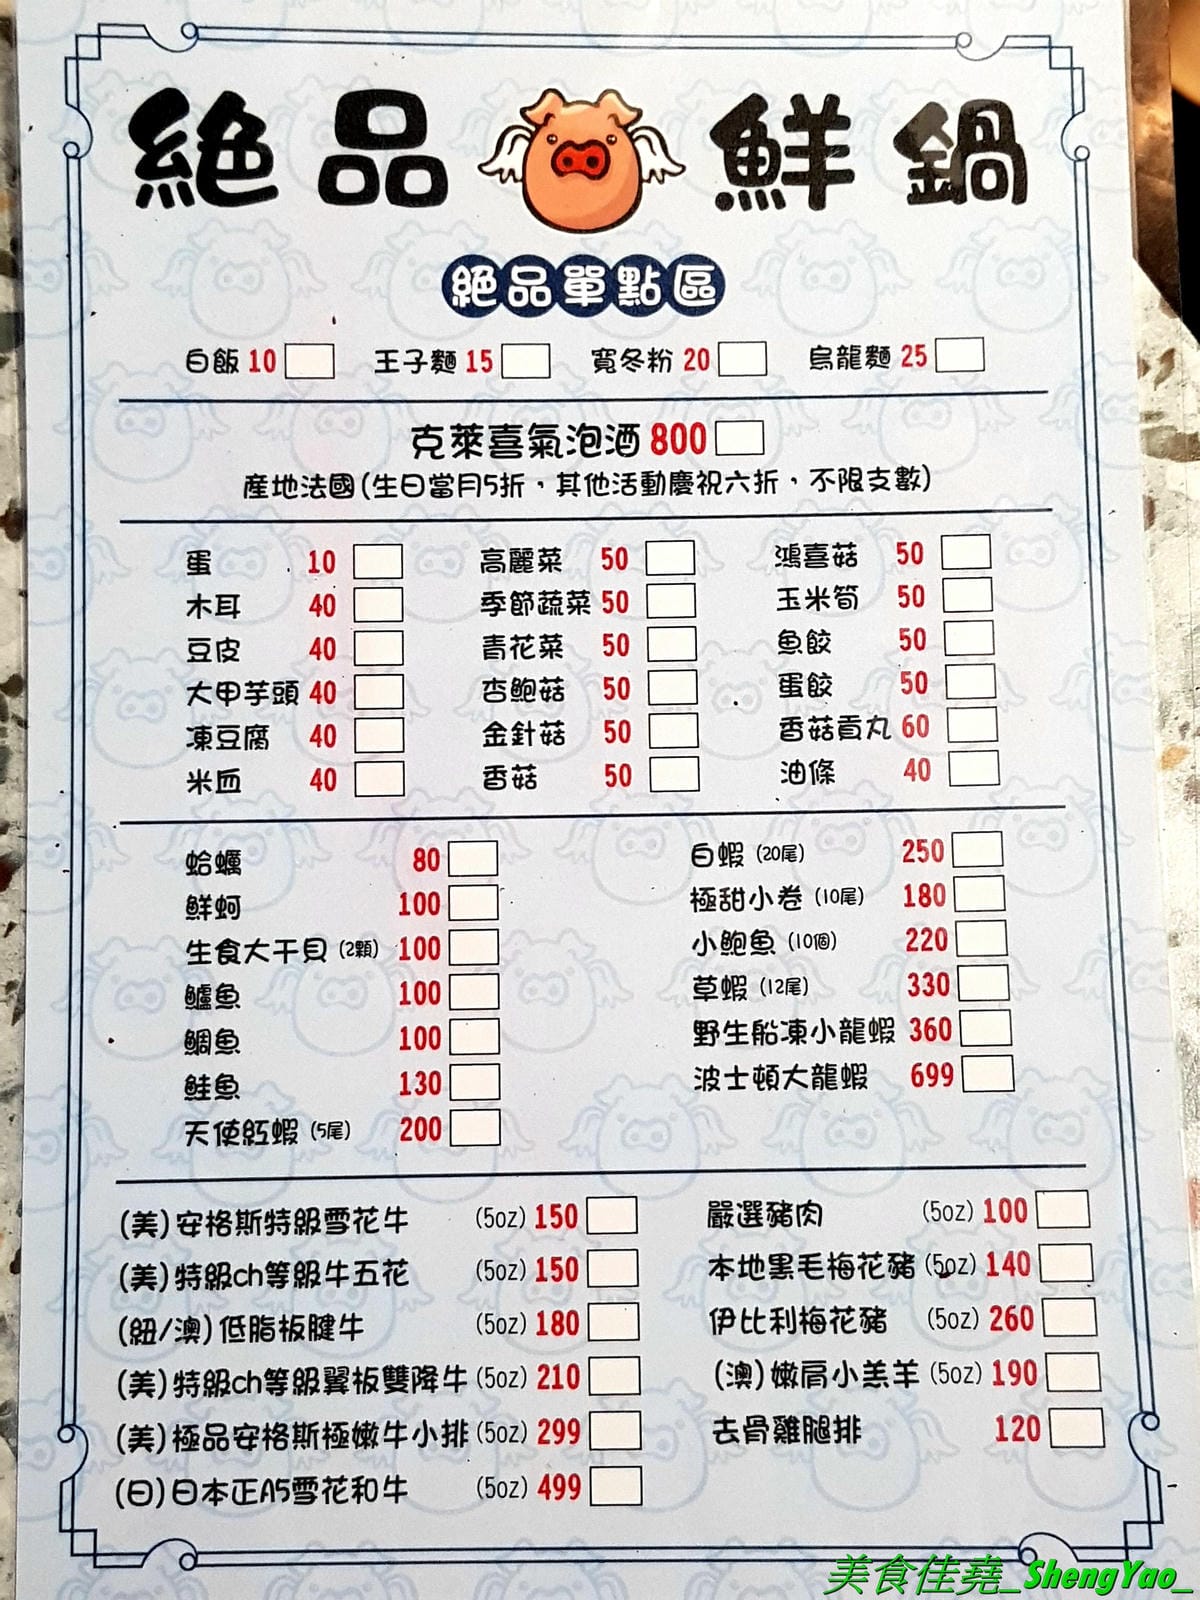 絕品 鮮鍋
絕品單點區
白飯 10 王子麵 15 寬冬粉 20 烏龍麵 25
克萊喜氣泡酒 800
產地法國(生日當月5折，其他活動慶祝六折，不限支數)
蛋 10 高麗菜 50 鴻喜菇 50
木耳 40 季節蔬菜 50 玉米筍 50
豆皮 40 青花菜 50 魚餃 50
大甲芋頭 40 杏鮑菇 50 蛋餃 50
凍豆腐 40 金針菇 50 香菇貢丸 60
米血 40 香菇 50 油條 40
蛤蠣 80 白蝦 (20尾) 250
鮮蚵 100 極甜小卷 (10尾) 180
生食大干貝 (2顆) 100 小鮑魚 (10個) 220
鱸魚 100 草蝦 (12尾) 330
鯛魚 100 野生船凍小龍蝦 360
鮭魚 130 波士頓大龍蝦 699
天使紅蝦 (5尾) 200
(美)安格斯特級雪花牛 (5oz) 150 嚴選豬肉 (5oz) 100
(美)特級ch等級牛五花 (5oz) 150 本地黑毛梅花豬 (5oz) 140
(紐/澳)低脂板腱牛 (5oz) 180 伊比利梅花豬 (5oz) 260
(美)特級ch等級翼板雙降牛 (5oz) 210 (澳)嫩肩小羔羊 (5oz) 190
(美)極品安格斯極嫩牛小排 (5oz) 299 去骨雞腿排 120
(日)日本正A5雪花和牛 (5oz) 499
美食佳堯_ShengYao_